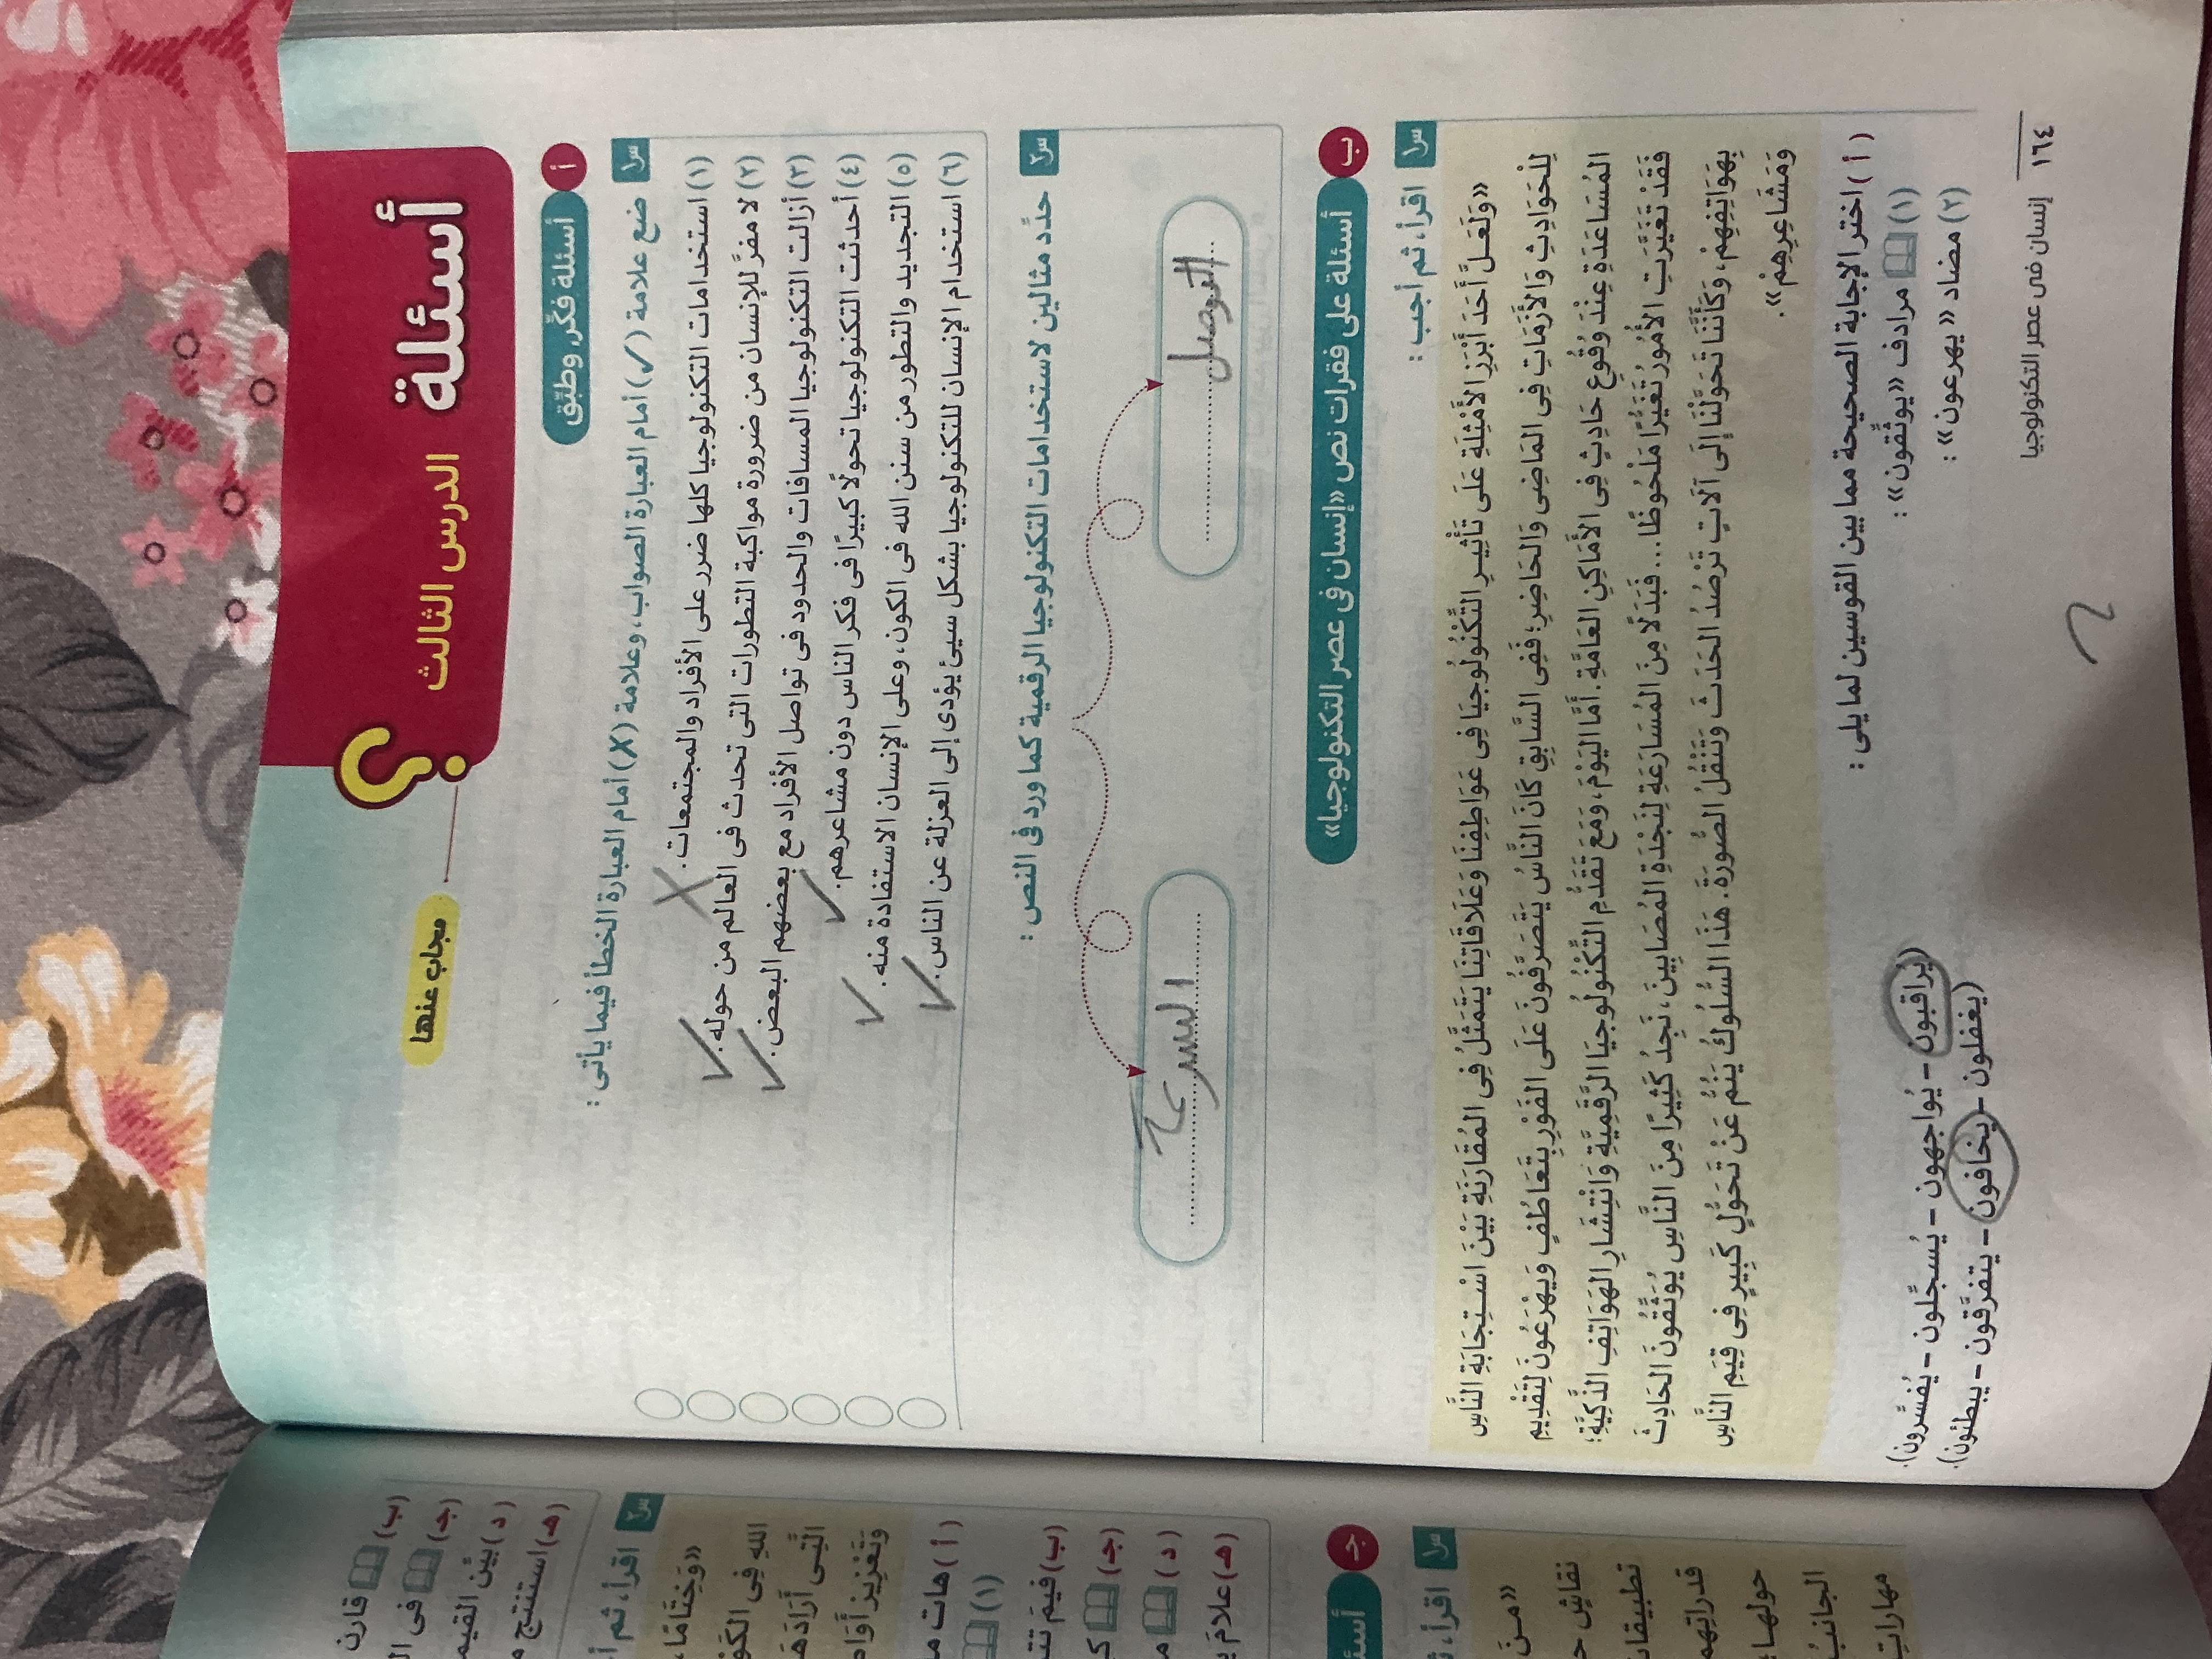 أسئلة الدرس الثالث
مجاب عنها
أ أسئلة فكّر وطبّق
س١ ضع علامة (✓) أمام العبارة الصواب، وعلامة (✗) أمام العبارة الخطأ فيما يأتى :
(١) استخدامات التكنولوجيا كلها ضرر على الأفراد والمجتمعات. ✗
(٢) لا مفرَّ للإنسان من ضرورة مواكبة التطورات التى تحدث فى العالم من حوله. ✓
(٣) أزالت التكنولوجيا المسافات والحدود فى تواصل الأفراد مع بعضهم البعض. ✓
(٤) أحدثت التكنولوجيا تحولًا كبيرًا فى فكر الناس دون مشاعرهم. ✓
(٥) التجديد والتطور من سنن الله فى الكون، وعلى الإنسان الاستفادة منه. ✓
(٦) استخدام الإنسان للتكنولوجيا بشكل سيئ يؤدى إلى العزلة عن الناس. ✓
س٢ حدِّد مثالين لاستخدامات التكنولوجيا الرقمية كما ورد فى النص :
التوصل
السرعة
ب أسئلة على فقرات نص «إنسان فى عصر التكنولوجيا»
س١ اقرأ، ثم أجب :
«وَلَعَلَّ أَحَدَ أَبْرَزِ الأَمْثِلَةِ عَلَى تَأْثِيرِ التِّكْنُولُوجِيَا فِى عَوَاطِفِنَا وَعَلَاقَاتِنَا يَتَمَثَّلُ فِى المُقَارَنَةِ بَيْنَ اسْتِجَابَةِ النَّاسِ
لِلْحَوَادِثِ وَالأَزَمَاتِ فِى المَاضِى وَالحَاضِرِ؛ فَفِى السَّابِقِ كَانَ النَّاسُ يَتَصَرَّفُونَ عَلَى الفَوْرِ بِتَعَاطُفٍ وَيَهْرَعُونَ لِتَقْدِيمِ
المُسَاعَدَةِ عِنْدَ وُقُوعِ حَادِثٍ فِى الأَمَاكِنِ العَامَّةِ. أَمَّا اليَوْمَ، وَمَعَ تَقَدُّمِ التِّكْنُولُوجِيَا الرَّقْمِيَّةِ وَانْتِشَارِ الهَوَاتِفِ الذَّكِيَّةِ؛
فَقَدْ تَغَيَّرَتِ الأُمُورُ تَغَيُّرًا مَلْحُوظًا... فَبَدَلًا مِنَ المُسَارَعَةِ لِنَجْدَةِ المُصَابِينَ، نَجِدُ كَثِيرًا مِنَ النَّاسِ يُوَثِّقُونَ الحَادِثَ
بِهَوَاتِفِهِمْ، وَكَأَنَّنَا تَحَوَّلْنَا إِلَى آلَاتٍ تَرْصُدُ الحَدَثَ وَتَنْقُلُ الصُّورَةَ. هَذَا السُّلُوكُ يَنُمُّ عَنْ تَحَوُّلٍ كَبِيرٍ فِى قِيَمِ النَّاسِ
وَمَشَاعِرِهِمْ».
(أ) اختر الإجابة الصحيحة مما بين القوسين لما يلى :
(١) مرادف «يوثِّقون» : (يُراقبون - يُواجهون - يُسجِّلون - يُفسِّرون).
(٢) مضاد «يهرعون» : (يغفلون - يخافون - يتفرَّقون - يبطئون).
١٦٤ إنسان فى عصر التكنولوجيا
(ب) قارن
(جـ) فى
(د) بيِّن القيم
(هـ) استنتج
س٢ اقرأ، ثم أ
«وَخِتَامًا،
اللهِ فِى الكَوْ
الَّتِى أَرَادَهَ
وَتَعْزِيزِ أَوَا
(أ) هات م
(١)
(ب) فيمَ تت
(جـ)
(د)
(هـ) علامَ ي
جـ أسئ
س١ اقرأ، ث
«مـن
نقاشٍ ح
تطبيقات
قدراتِهم
حولهـا
الجانبُ
مهاراتِ